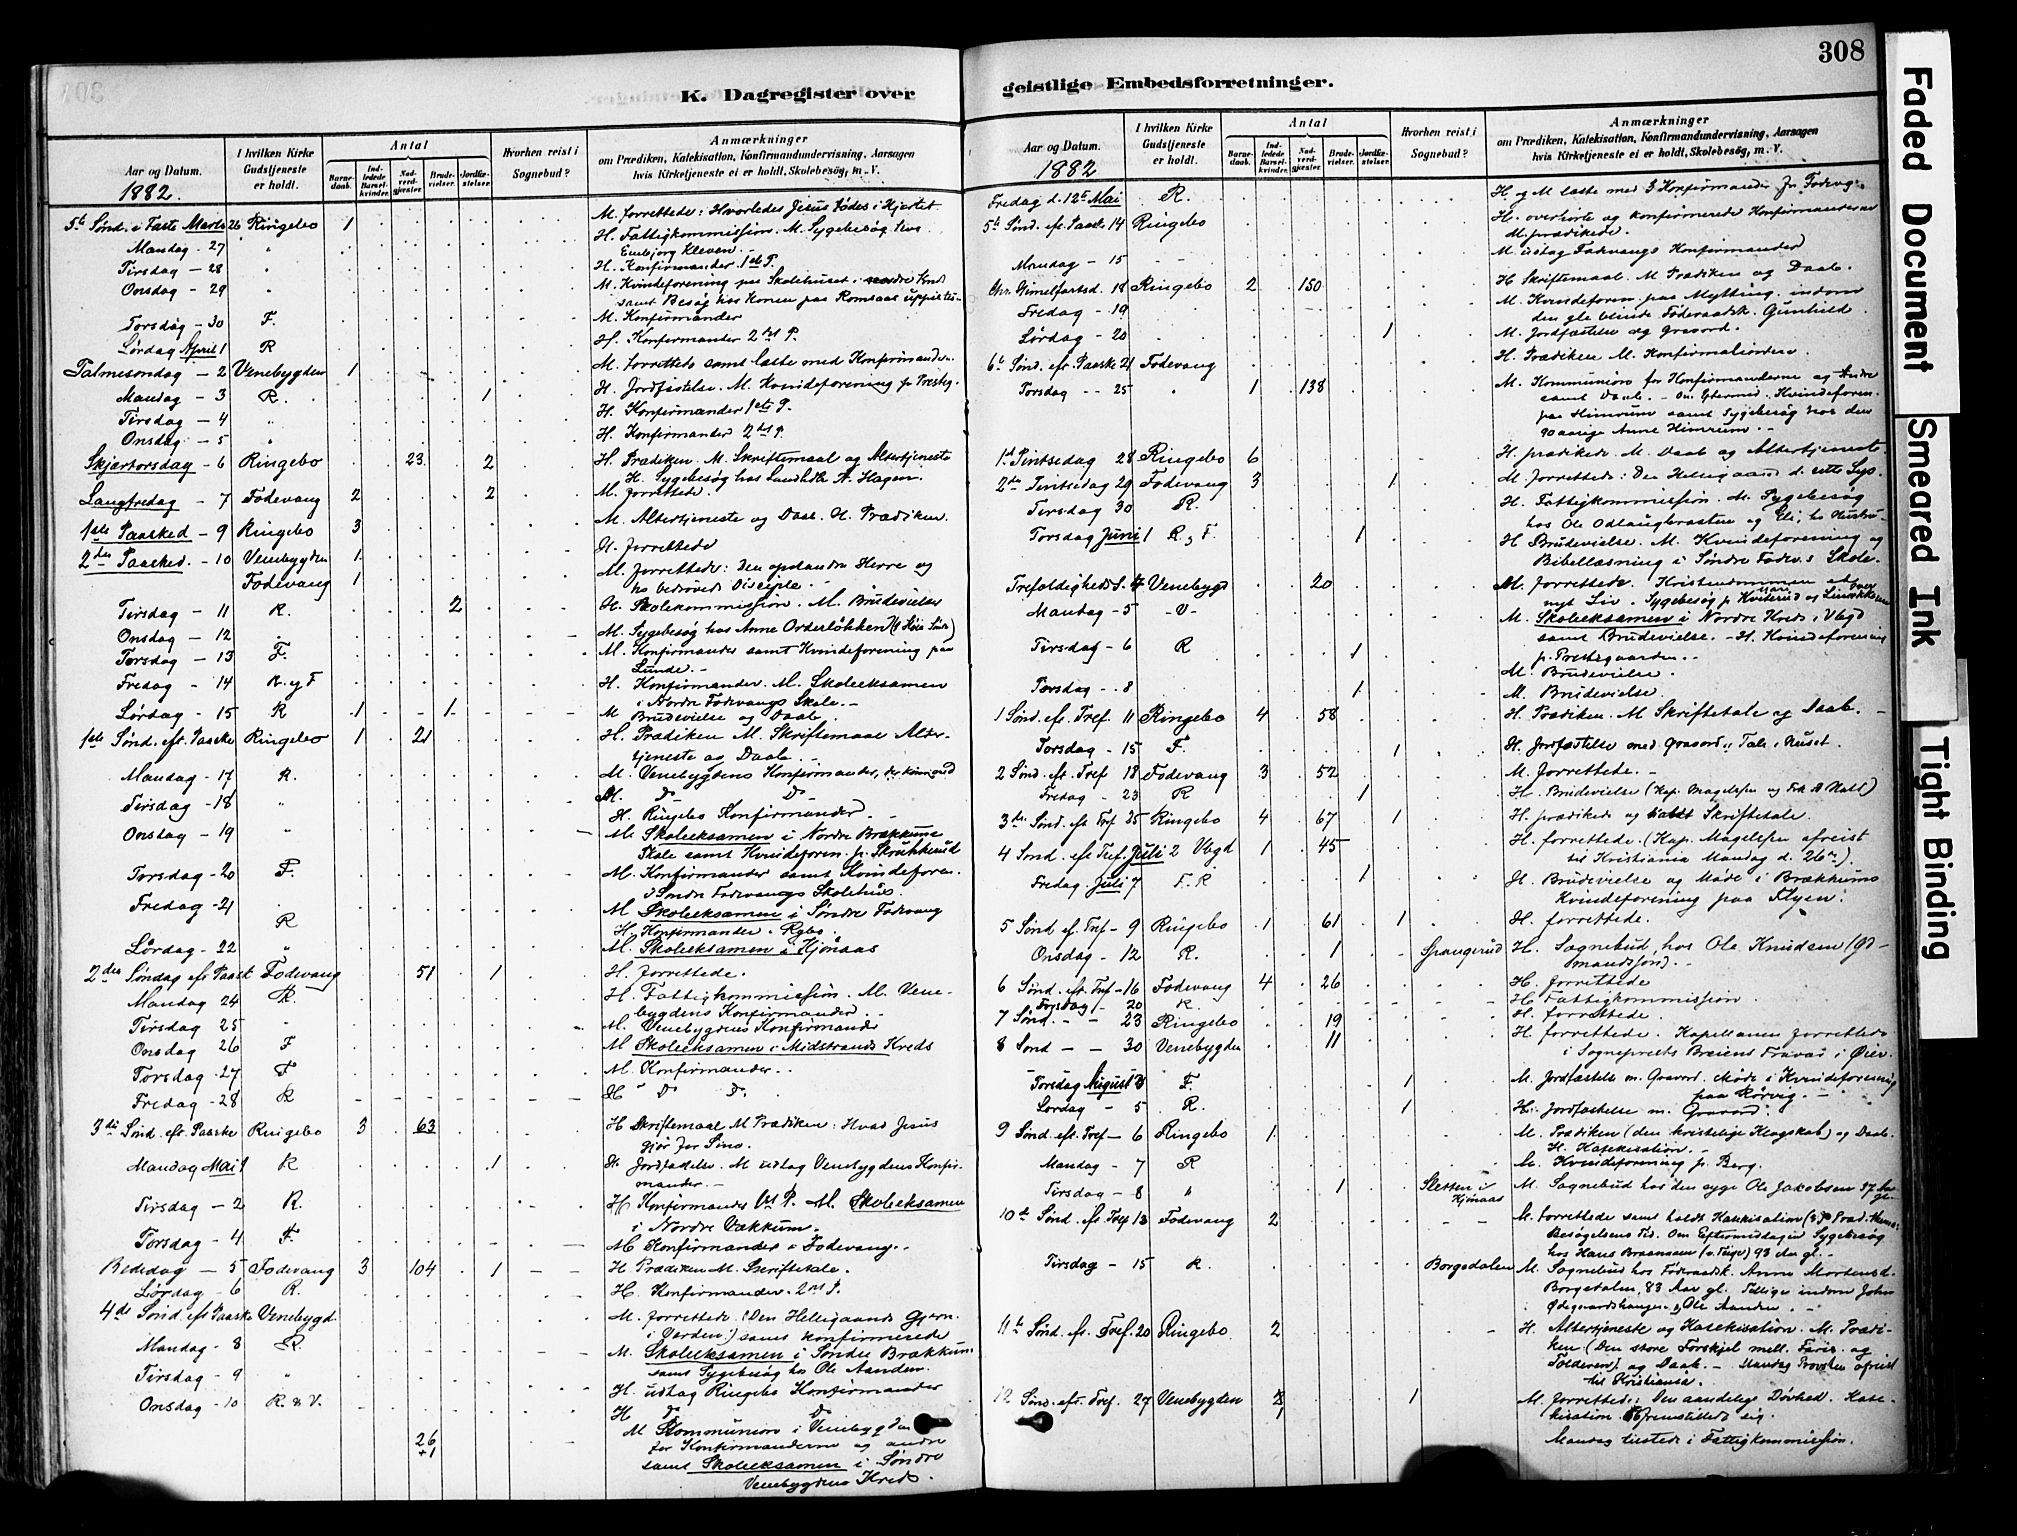 308
K. Dagregister over geistlige Embedsforretninger.
Aar og Datum. 1882.
I hvilken Kirke Gudstjeneste er holdt.
Antal
Barnedaab. Indledede Barselkvinder. Nadverdgjester Brudevielser. Jordfæstelser.
Hvorhen reist i Sognebud?
Anmærkninger
om Prædiken, Katekisation, Konfirmandundervisning, Aarsagen
hvis Kirketjeneste ei er holdt, Skolebesøg, m. V.
5te Sønd. i Faste Marts 26 Ringebo 1 M. forrettede: Hvorledes Jesus fødes i Hjertet
Mandag - 27 " H. Fattigkommission. M. Sygebesøg
Kleven.
Tirsdag - 28 " H. Konfirmander 1ste P.
Onsdag - 29 " M. Kvindeforening paa Skolehuset
samt Besøg hos Konen paa Romsaas
Torsdag - 30 F. M. Konfirmander
Lørdag April 1 R H. Konfirmander 2det P.
Palmesøndag - 2 Venebygden 1 M. forrettede samt læste med Konfirmander.
Mandag - 3 R. 1 H. Jordfæstelse. M. Kvindeforening p. Prestg.
Tirsdag - 4 " H. Konfirmander 1ste P.
Onsdag - 5 " H. Konfirmander 2det P.
Skjærtorsdag - 6 Ringebo 23 2 H. Prædiken. M. Skriftemaal og Altertjeneste
H. Sygebesøg hos A. Hagen.
Langfredag - 7 Fodevang 2 2 M. forrettede.
1ste Paasked - 9 Ringebo 3 M. Altertjeneste og Daab. H. Prædiken.
2den Paasked. - 10 Venebygden 1 H. forrettede
Fodevang 1 M. forrettede: Den opstandne Herre og
to bedrøvede Disciple.
Tirsdag - 11 R. 2 H. Skolekommission. M. Brudevielser
Onsdag - 12 . M. Sygebesøg hos Anne Orderløkken
Torsdag - 13 F. M. Konfirmander samt Kvindeforening paa
Lunde.
Fredag - 14 R. og F H. Konfirmander. M. Skoleeksamen
i Nordre Fodevangs Skole.
Lørdag - 15 R 1 1 M Brudevielse og Daab.
1ste Sønd. eft. Paaske Ringebo 1 21 H. Prædiken M. Skriftemaal Alter-
tjeneste og Daab.
Mandag - 17 R. M. Venebygdens Konfirmander,
Tirsdag - 18 " M. Do Do
H. Ringebo Konfirmander.
Onsdag - 19 " M. Skoleeksamen i Nordre Brækkums
Skole samt Kvindeforen. p. Skrukkerud
Torsdag - 20 F. M. Konfirmander samt Kvindeforen.
i Søndre Fodevangs Skolehus.
Fredag - 21 M Skoleeksamen i Søndre Fodevang
R H. Konfirmander. Rgbo.
Lørdag - 22 " M. Skoleeksamen i Kjønaas
2den Søndag eft Paask Fodevang 51 1 H. forrettede.
Mandag 24 R. H. Fattigkommission. M. Vene-
bygdens Konfirmander.
Tirsdag 25 " M. Venebygdens Konfirmander
Onsdag 26 F M Skoleeksamen i Midtstrands Kreds
Torsdag - 27 F M. Konfirmander.
Fredag - 28 R H Do Do
3die Sønd. eft. Paaske Ringebo 3 63 H Skriftemaal M Prædiken: Hvad Jesus
gjør for Sine.
Mandag Mai 1 R 1 H. Jordfæstelse. M udtog Venebygdens Konfir-
mander.
Tirsdag - 2 R. H Konfirmander 1st P. M. Skoleeksamen
i Nordre Vækkum.
Torsdag - 4 F. M Konfirmander i Fodevang.
Bededag - 5 Fodevang 3 104 1 H Prædiken M. Skriftetale.
Lørdag - 6 R. H. Konfirmander. 2det P.
4de Sønd. eft Paaske Venebygd. M. forrettede (Den Helligaands Gjern.
i Verden) samt konfirmerede
Mandag - 8 R. M. Skoleeksamen i Søndre Brækkum
samt Sygebesøg ho Ole Aanden.
Tirsdag - 9 " H. udtog Ringebo Konfirmander
Onsdag - 10 R. & V. H Do Do
26 +1 M Kommunion i Venebygden
for Konfirmanderne og andre
samt Skoleeksamen i Søndre
Venebygdens Kreds.
Aar og Datum. 1882
I hvilken Kirke Gudstjeneste er holdt.
Antal
Barnedaab. Indledede Barselkvinder. Nadverdgjester Brudevielser. Jordfæstelser.
Hvorhen reist i Sognebud?
Anmærkninger
om Prædiken, Katekisation, Konfirmandundervisning, Aarsagen
hvis Kirketjeneste ei er holdt, Skolebesøg, m. V.
Fredag d. 12te Mai R. H og M læste med 3 Konfirmander fr. Fodevg.
5te Sønd. eft. Paaske 14 Ringebo H. overhørte og konfirmerede Konfirmanderne
M. prædikede.
Mandag - 15 M udtog Fodevangs Konfirmander
Chr. Himelfartsd. 18 Ringebo 2 150 H Skriftemaal. M Prædiken og Daab.
Fredag - 19 M. Kvindeforen. paa Mytting. indom
den gle blinde Føderaadsk. Gunhild.
Lørdag - 20 1 M. Jordfæstelse og Gravord.
6te Sønd. eft. Paaske 21 Fodevang H. Prædiken M. Konfirmationen.
Torsdag - 25 " 1 138 M. Kommunion for Konfirmanderne og Andre
samt Daab. - Om Efterm. Kvindeforen.
paa Himrum samt Sygebesøg hos den
90 aarige Anne Himrum.
1ste Pintsedag 28 Ringebo 6 H. prædikede M. Daab og Altertjeneste.
2den Pintsedag 29 Fodevang 3 1 M. forrettede: Den Helligaand d. rette Lys.
Tirsdag 30 R. H. Fattigkommission. M. Sygebesøg
hos Ole Odlaugbraaten og Eli, hs Hustru
Torsdag Juni 1 R, F. 1 H Brudevielse. M. Kvindeforening og
Bibellæsning i Søndre Fodev.s Skole.
Trefoldigheds S. 4 Venebygd 20 M. forrettede. Kristendommen et
nyt Liv. Sygebesøg p. Kviterud og
Mandag - 5 V. M. Skoleeksamen i Nordre Kreds i Vbgd
samt Brudevielse. H. Kvindeforening
p. Prestegaarden.
Tirsdag - 6 R 1 M. Brudevielse.
Torsdag - 8 1 M. Brudevielse.
1 Sønd. eft. Tref. 11 Ringebo 4 58 H. Prædiken. M Skriftetale og Daab.
Torsdag - 15 F. 1 H. Jordfæstelse med Gravord, Tale i Huset.
2 Sønd. eft. Tref 18 Fodevang 3 52 M. forrettede.
Fredag - 23 R 1 H. Brudevielse (Kap. Magelssen og Frk A Hall)
3die Sønd. eft Tref 25 Ringebo 4 67 1 H. prædikede og holdt Skriftetale.
4 Sønd. eft Tref. Juli 2 Vbgd 1 45 H. forrettede (Kap. Magelssen afreist
til Kristiania Mandag d. 26de).
Fredag Juli 7 F. R 1 H. Brudevielse og Møde i Brækkums
Kvindeforening paa Flyen.
5 Sønd ef. Tref - 9 Ringebo 1 61 1 H. forrettede.
Onsdag - 12 R. 1 Spangerud H. Sognebud hos Ole Knudsen
6 Sønd. eft. Tref - 16 Fodevang 4 26 H. forrettede
Torsdag - 20 R H Fattigkommission.
7 Sønd. - - 23 Ringebo 19 H. forrettede.
8 Sønd - - 30 Venebygden 11 H. forrettede. Kapellanen forrettede
i Sogneprest Breiens Fravær i Øier.
Torsdag August 3 F. 1 M. Jordfæstelse m. Gravord. Møde i Kvindeforening
paa Rørvig.
Lørdag - 5 R. 1 H. Jordfæstelse m. Gravord.
9 Sønd. eft. Tref - 6 Ringebo 1 M. Prædiken (den kristelige Klogskab) og Daab.
H. Katekisation.
Mandag - 7 R M. Kvindeforening p. Berg.
Tirsdag - 8 " 1 Sletten i Kjønaas M. Sognebud hos den syge Ole Jakobsen 37 Aar gl.
10de Sønd. eft Tref 13 Fodevang 2 M. forrettede samt holdt Katekisation
Besøgelsens Tid. Om Eftermiddagen Sygebesøg
hos Hans Braansen 93 Aar gl.
Tirsdag - 15 R. Borgedalen M. Sognebud hos Føderaadk. Anne Mortensd.
Borgedalen, 83 Aar gl. Tillige indom John
Ødegaardshaugen, Ole Aanden.
11te Sønd. ef. Tref. 20 Ringebo 2 H. Altertjeneste og Katekisation. M. Prædi-
ken (Den store Forskjel mell. Faris. og
Tolderen) og Daab. - Mandag Provsten afreist
til Kristiania.
12 Sønd. eft. Tref. 27 Venebygden 1 1 M. forrettede: Den aandelige Døvhed. Kate-
kisation. fremstillede sig.
Mandag tilstede i Fattigkommission.
Faded Document
Smeared Ink
Tight Binding